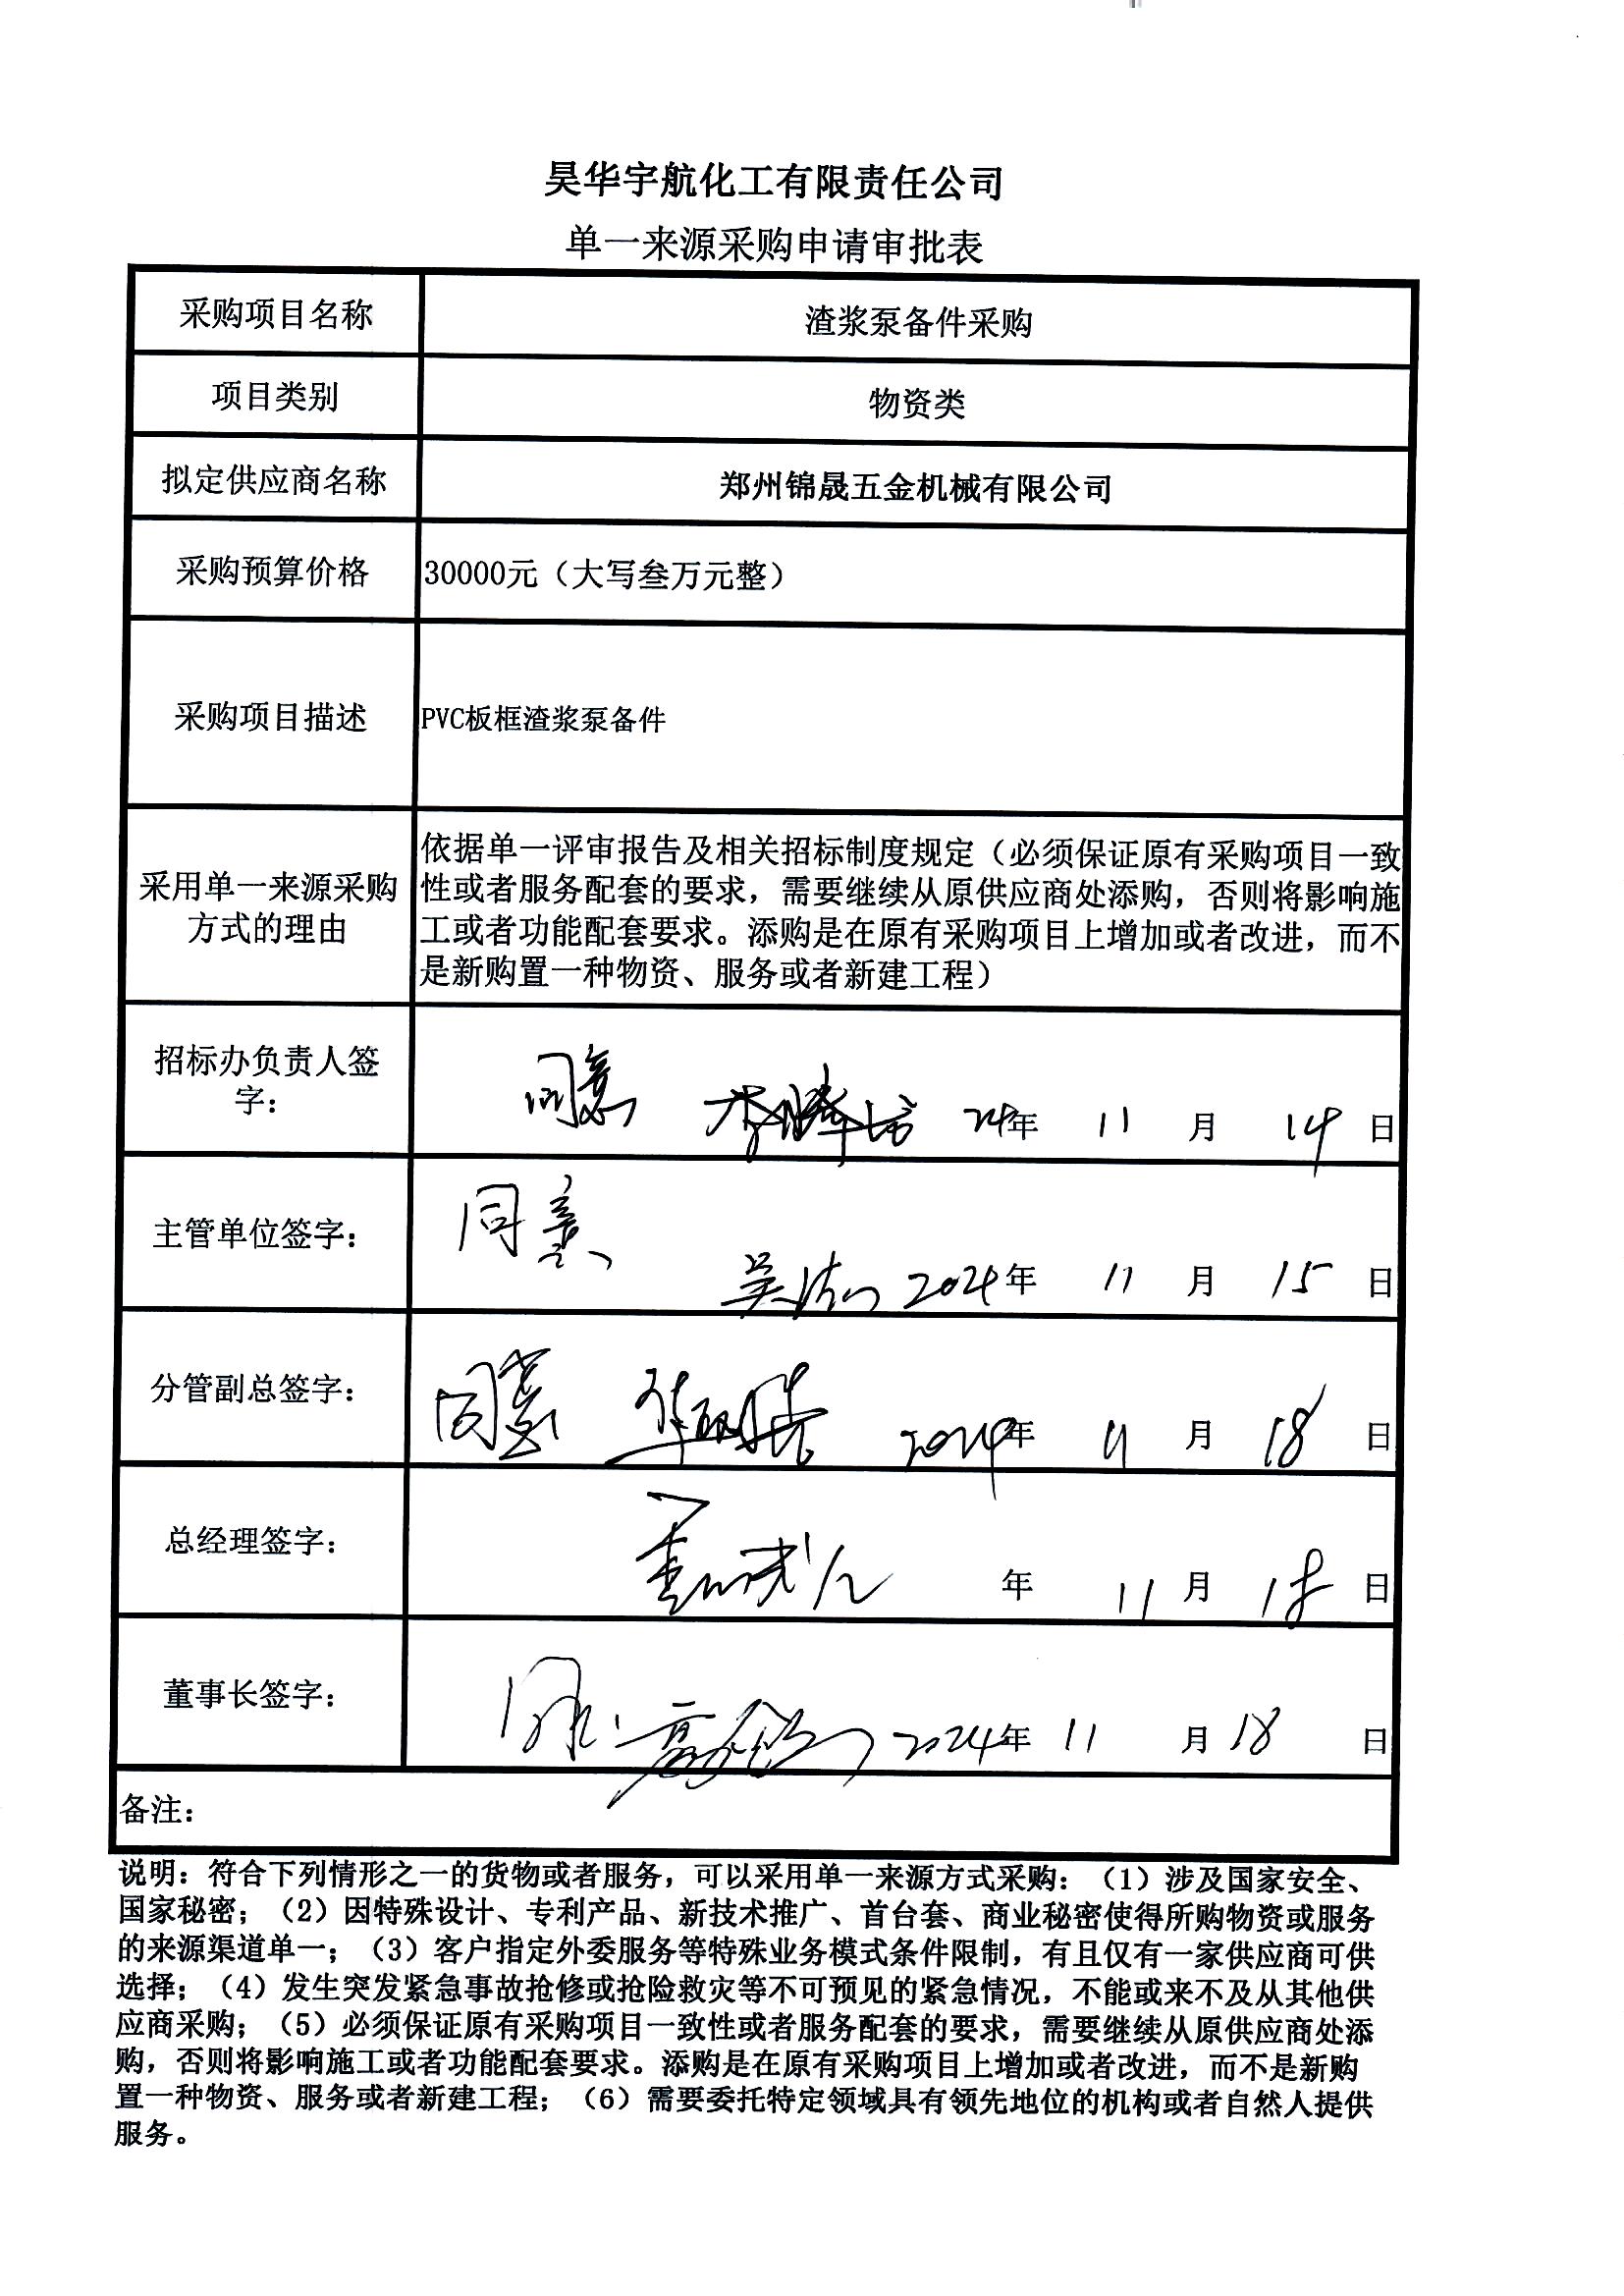 昊华宇航化工有限责任公司
单一来源采购申请审批表
采购项目名称
渣浆泵备件采购
项目类别
物资类
拟定供应商名称
郑州锦晟五金机械有限公司
采购预算价格
30000元（大写叁万元整）
采购项目描述
PVC板框渣浆泵备件
采用单一来源采购
方式的理由
依据单一评审报告及相关招标制度规定（必须保证原有采购项目一致
性或者服务配套的要求，需要继续从原供应商处添购，否则将影响施
工或者功能配套要求。添购是在原有采购项目上增加或者改进，而不
是新购置一种物资、服务或者新建工程）
招标办负责人签
字：
同意 24年 11 月 14 日
主管单位签字：
同意
2024年 11 月 15 日
分管副总签字：
同意 2024年 11 月 18 日
总经理签字：
年 11 月 18 日
董事长签字：
2024年 11 月 18 日
备注：
说明：符合下列情形之一的货物或者服务，可以采用单一来源方式采购：（1）涉及国家安全、
国家秘密；（2）因特殊设计、专利产品、新技术推广、首台套、商业秘密使得所购物资或服务
的来源渠道单一；（3）客户指定外委服务等特殊业务模式条件限制，有且仅有一家供应商可供
选择；（4）发生突发紧急事故抢修或抢险救灾等不可预见的紧急情况，不能或来不及从其他供
应商采购；（5）必须保证原有采购项目一致性或者服务配套的要求，需要继续从原供应商处添
购，否则将影响施工或者功能配套要求。添购是在原有采购项目上增加或者改进，而不是新购
置一种物资、服务或者新建工程；（6）需要委托特定领域具有领先地位的机构或者自然人提供
服务。